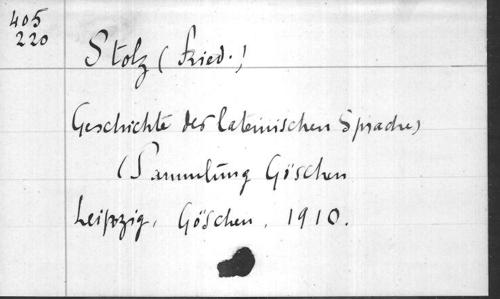 405
220
Stolz (Fried.)
Geschichte der lateinischen Sprache)
(Sammlung Göschen
Leipzig, Göschen, 1910.